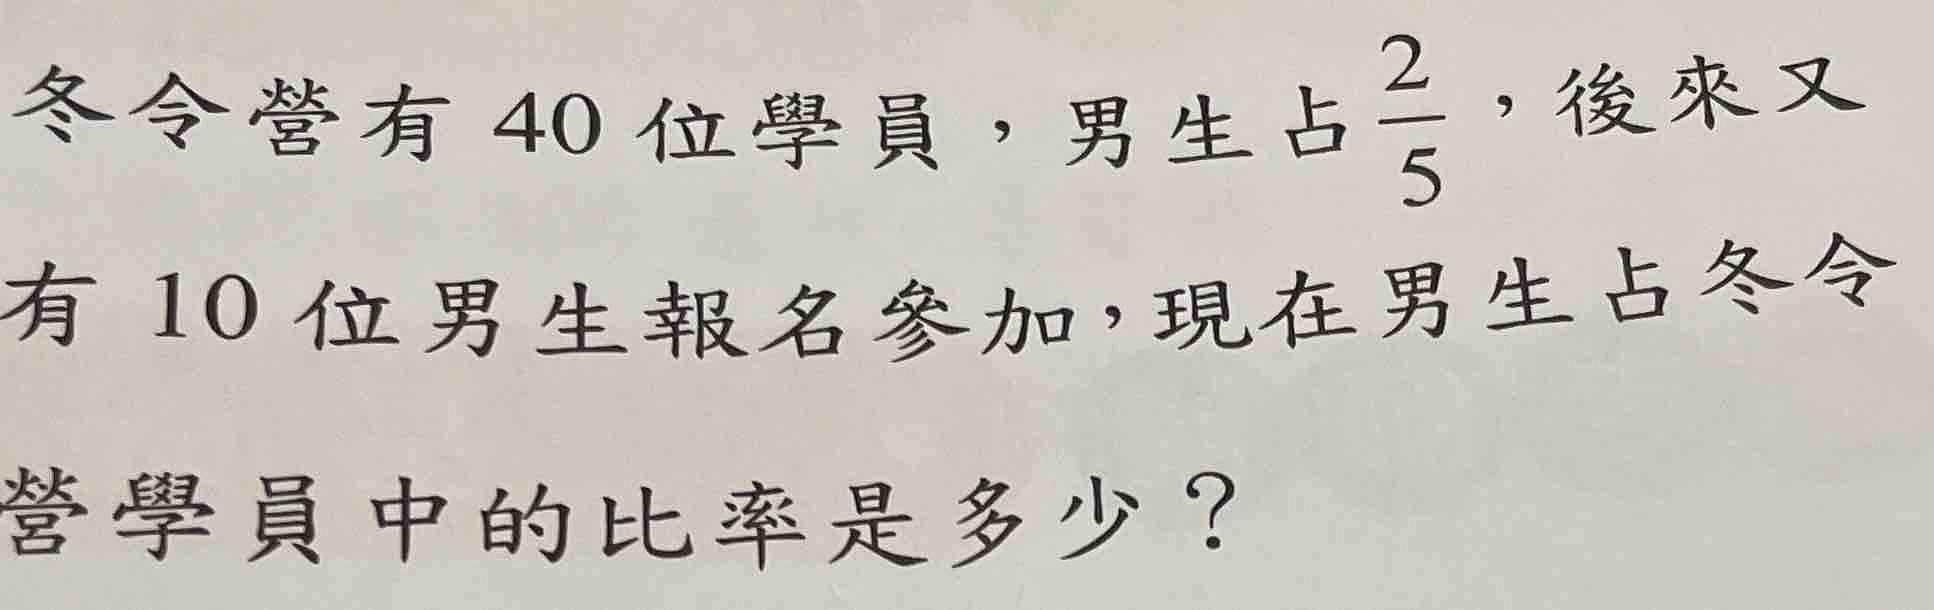 冬令營有 40 位學員，男生占2/5，後來又
有 10 位男生報名參加，現在男生占冬令
營學員中的比率是多少？